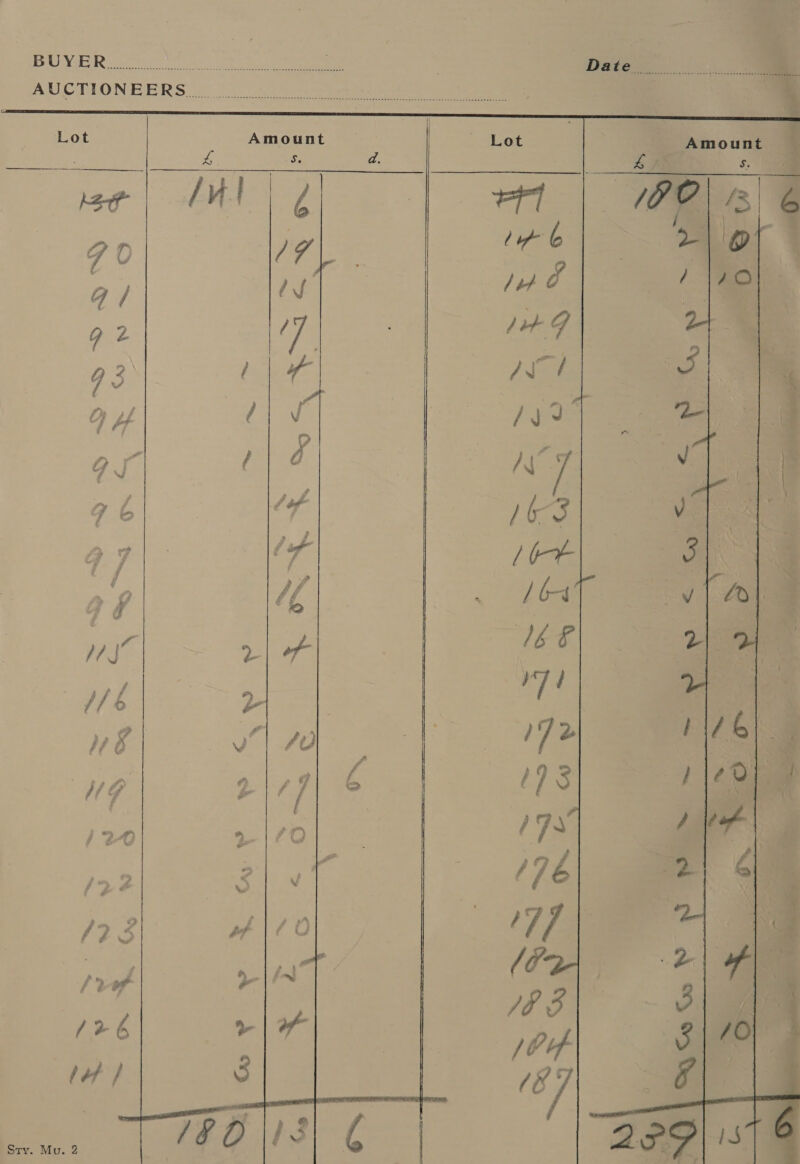 BUYER Date
AUCTIONEERS
Lot Amount Lot Amount
£ s. d. £ s.
141 6 180 13 6
90 19 146 2 0
91 15 148 1 10
92 17 149 2
93 1 4 151 3
94 1 5 155 2
95 1 8 157 5
96 14 163 5
97 14 164 3
98 16 165 5 10
115 2 4 168 2 2
116 2 171 2
118 5 10 172 1 16
119 2 17 6 173 1 10
120 2 10 175 1 14
122 3 5 176 2 6
123 4 10 177 2
124 2 15 182 2 4
126 2 4 183 3
141 3 184 3 10
187 8
180 13 6 239 15 6
Sty. Mu. 2